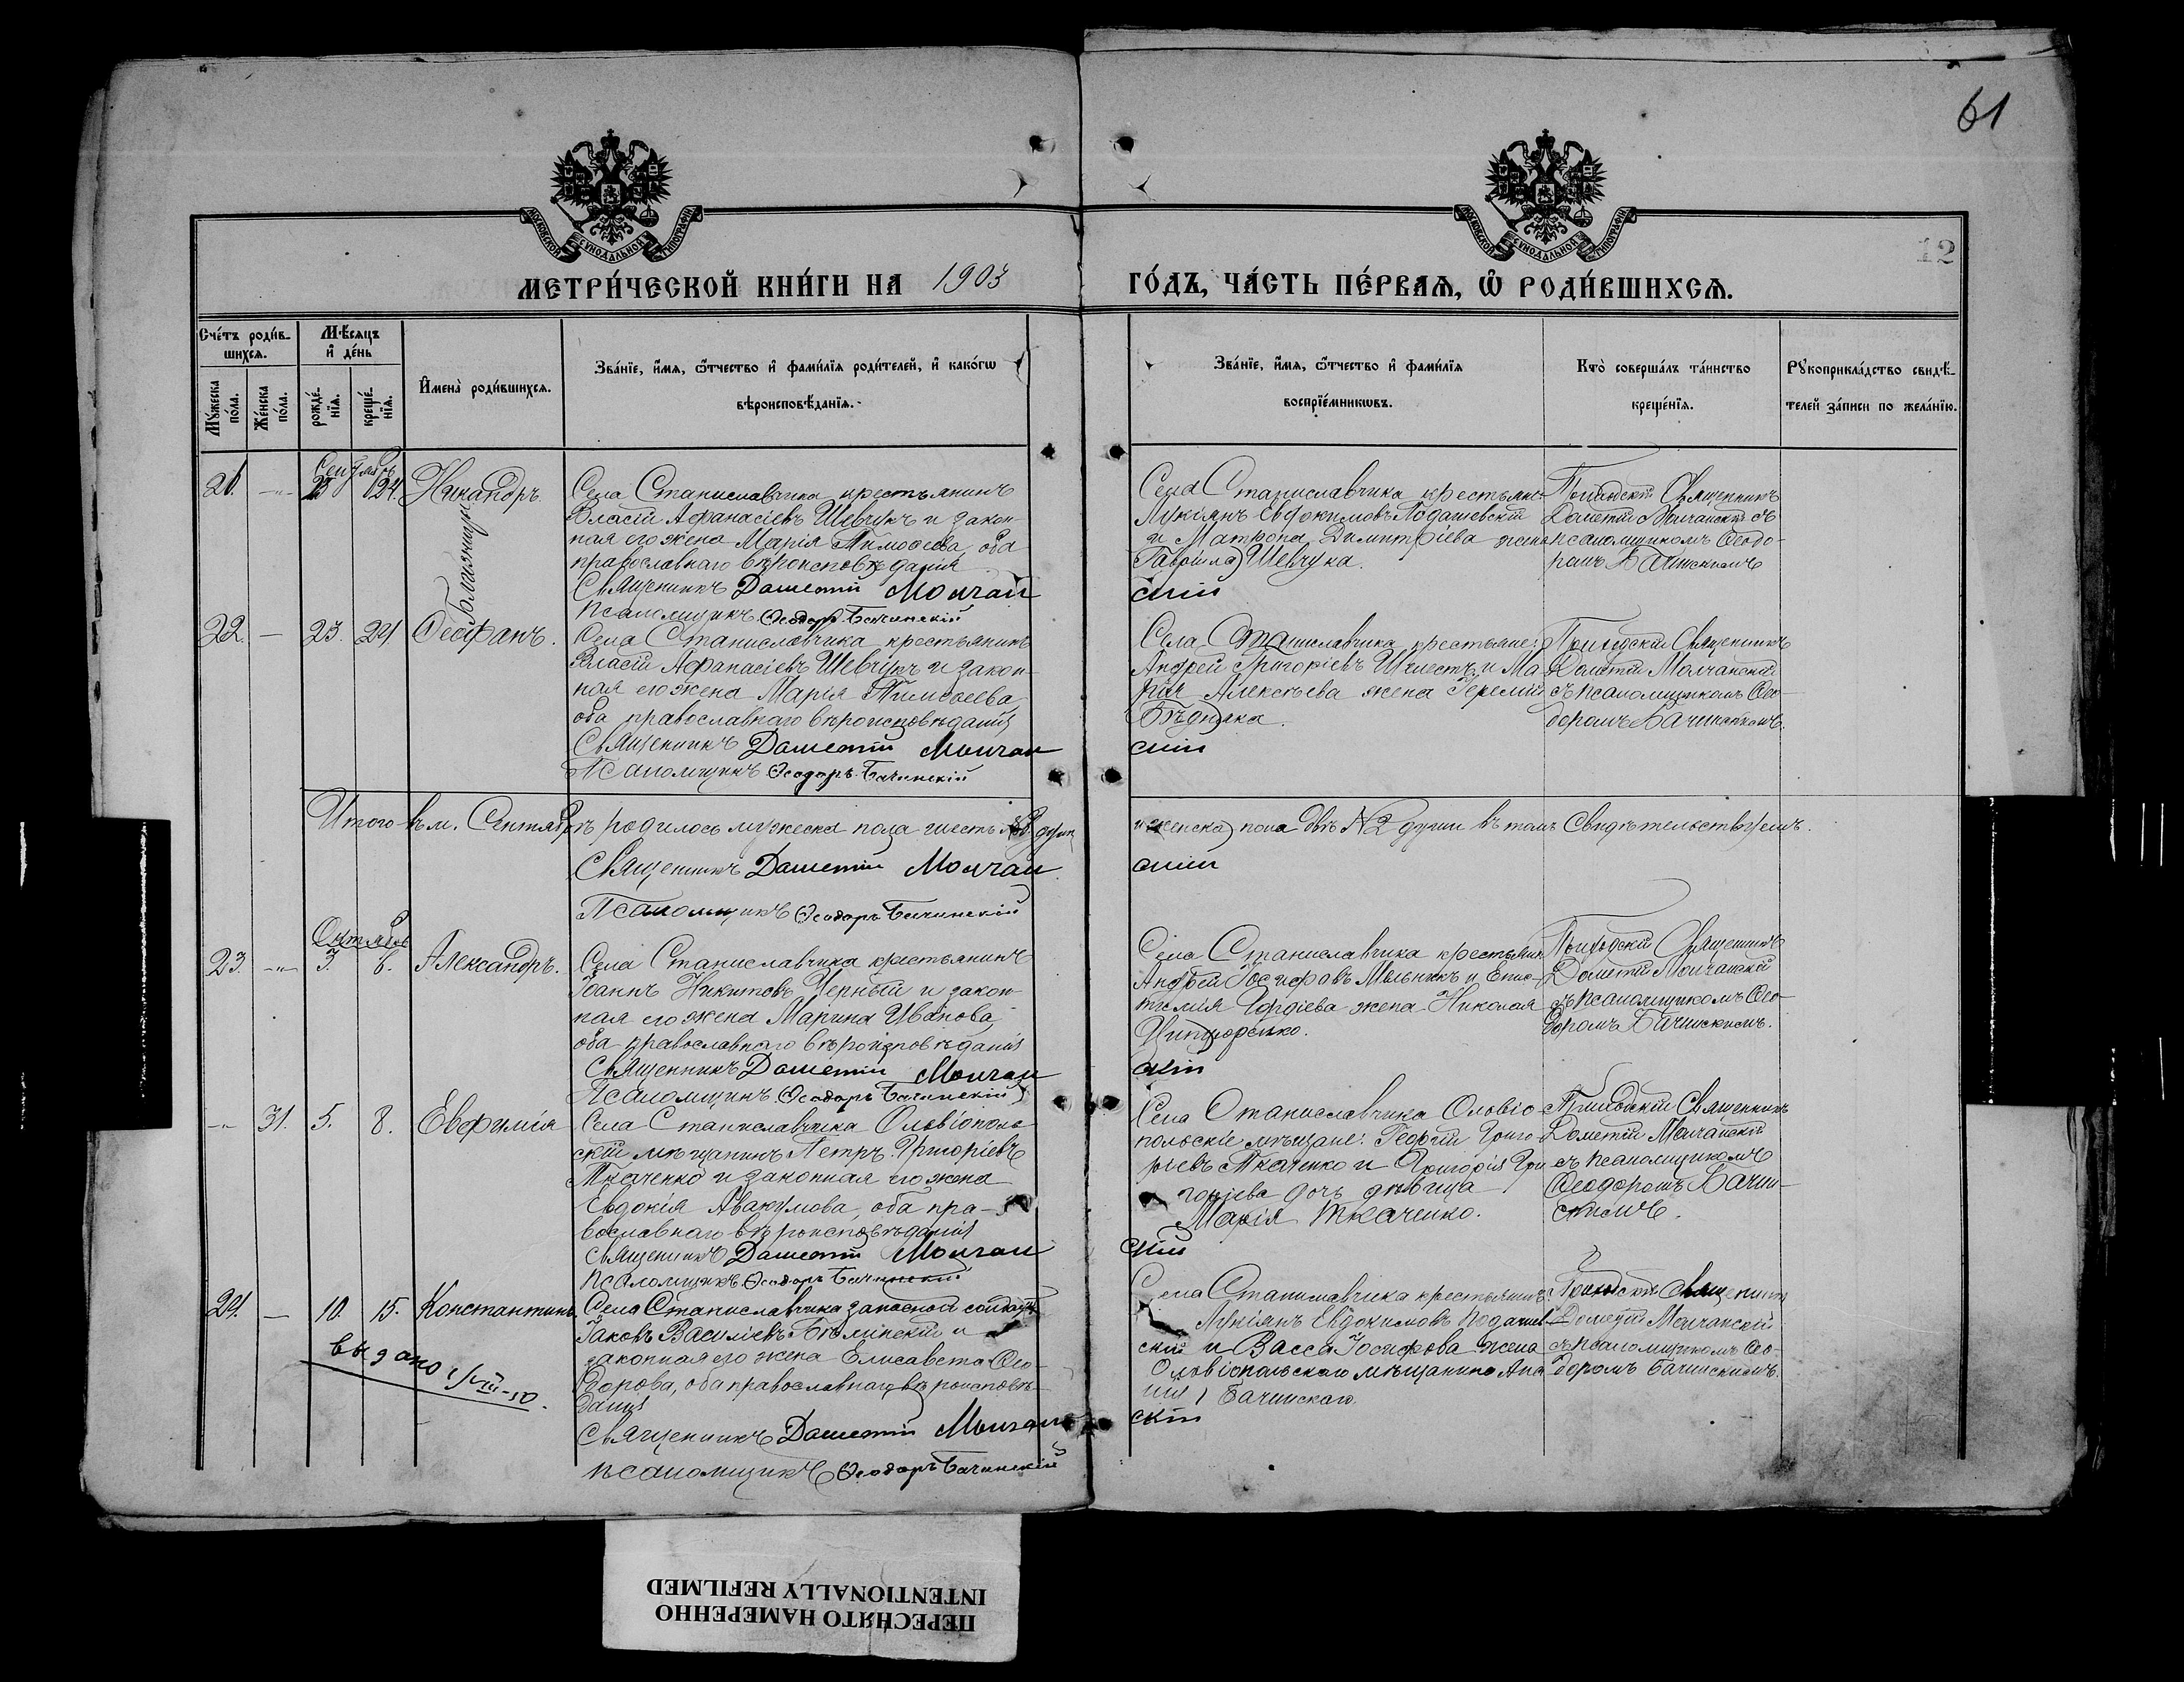 61
12
МОСКОВСКОЙ СѴНОДАЛЬНОЙ ТИПОГРАФІИ
МОСКОВСКОЙ СѴНОДАЛЬНОЙ ТИПОГРАФІИ
МЕТРИ́ЧЕСКОЙ КНИ́ГИ НА 1903 ГО́ДЪ, ЧА́СТЬ ПЕ́РВАѦ, Ѿ РОДИ́ВШИХСѦ.
Сче́тъ роди́в-
шихсѧ.
Мѣ́сѧцъ
и҆ де́нь
Мꙋ́жеска по́ла.
Же́нска по́ла.
рожде́-
нїѧ.
креще́-
нїѧ.
И҆мена̀ роди́вшихсѧ.
Зва́нїе, и҆́мѧ, ѻ҆́тчество и҆ фами́лїѧ роди́телей, и҆ како́гѡ
вѣроисповѣ́данїѧ.
Зва́нїе, и҆́мѧ, ѻ҆́тчество и҆ фами́лїѧ
воспрїе́мникѡвъ.
Кто̀ соверша́лъ та́инство
креще́нїѧ.
Рꙋкоприкла́дство свидѣ́-
телей за́писи по жела́нїю.
Сентябрь
21. 23 24. Никандръ.
Близнецы
Села Станиславчика крестьянинъ
Власій Афанасіевъ Шевчукъ и закон-
ная его жена Марія Тимоѳеева, оба
православнаго вѣроисповѣданія
Священникъ Дометій Молчан
Псаломщикъ Ѳеодоръ Бачинскій
Села Станиславчика крестьяне
Лукіянъ Евдокимовъ Подашевскій
и Матрона Димитріева жена
Гавріила Шевчука.
скій
Приходскій Священникъ
Дометій Молчанскій съ
псаломщикомъ Ѳеодо-
ромъ Бачинскимъ
22. 23. 24 Ѳеофанъ.
Села Станиславчика крестьянинъ
Власій Афанасіевъ Шевчукъ и закон-
ная его жена Марія Тимоѳеева,
оба православнаго вѣроисповѣданія
Священникъ Дометій Молчан
Псаломщикъ Ѳеодоръ Бачинскій
Села Станиславчика крестьяне:
Андрей Григоріевъ и Ма-
рія Алексѣева жена Іереміи
Бѣдняка.
скій
Приходскій Священникъ
Дометій Молчанскій
съ псаломщикомъ Ѳео-
доромъ Бачинскимъ.
Итого въ м. Сентябрѣ родилось мужеска пола шесть №6 душъ и женска пола двѣ №2 души въ томъ свидѣтельствуемъ.
Священникъ Дометій Молчан
скій
Псаломщикъ Ѳеодоръ Бачинскій
Октябрь
23. 3. 6. Александръ.
Села Станиславчика крестьянинъ
Іоаннъ Никитовъ Черный и закон-
ная его жена Марина Иванова,
оба православнаго вѣроисповѣданія
Священникъ Дометій Молчан
Псаломщикъ Ѳеодоръ Бачинскій
Села Станиславчика крестьяне
Андрей Іосифовъ Мельникъ и Епис-
тимія Гордіева жена Николая
скій
Приходскій Священникъ
Дометій Молчанскій
съ псаломщикомъ Ѳео-
доромъ Бачинскимъ.
31. 5. 8. Евфимія
Села Станиславчика Ольвіополь-
скій мѣщанинъ Петръ Григоріевъ
Ткаченко и законная его жена
Евдокія Авакумова, оба пра-
вославнаго вѣроисповѣданія
Священникъ Дометій Молчан
Псаломщикъ Ѳеодоръ Бачинскій
Села Станиславчика Ольвіо-
польскіе мѣщане: Георгій Григо-
ріевъ Ткаченко и Григорія Гри
горіева дочь дѣвица
Марія Ткаченко.
скій
Приходскій Священникъ
Дометій Молчанскій
съ псаломщикомъ
Ѳеодоромъ Бачин-
скимъ.
24. 10. 15. Константинъ
выдано 1/VIII-10.
Села Станиславчика запасной солдатъ
Іаковъ Василіевъ Бѣлинскій и
законная его жена Елисавета Ѳео-
дорова, оба православнаго вѣроисповѣ-
данія
Священникъ Дометій Молчан
псаломщикъ Ѳеодоръ Бачинскій
Села Станиславчика крестьянинъ
Лукіянъ Евдокимовъ Подашев-
скій и Васса Іосифова жена
Ольвіопольскаго мѣщанина Ана
нія Бачинскаго.
скій
Приходскій Священникъ
Дометій Молчанскій
съ псаломщикомъ Ѳео-
доромъ Бачинскимъ.
ПЕРЕСНЯТО НАМЕРЕННО
INTENTIONALLY REFILMED